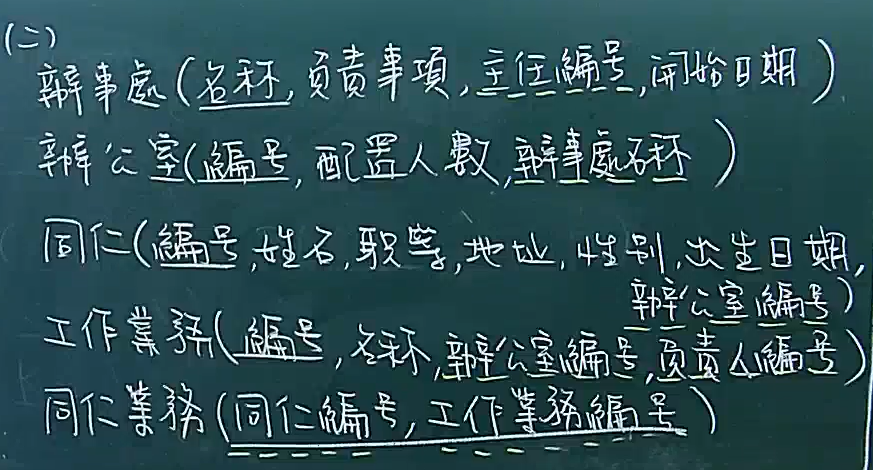 (二)
辦事處(名称,負責事項,主任編号,開始日期)
辦公室(編号,配置人數,辦事處名称)
同仁(編号,姓名,職等,地址,性別,出生日期,
辦公室編号)
工作業務(編号,名称,辦公室編号,負責人編号)
同仁業務(同仁編号,工作業務編号)